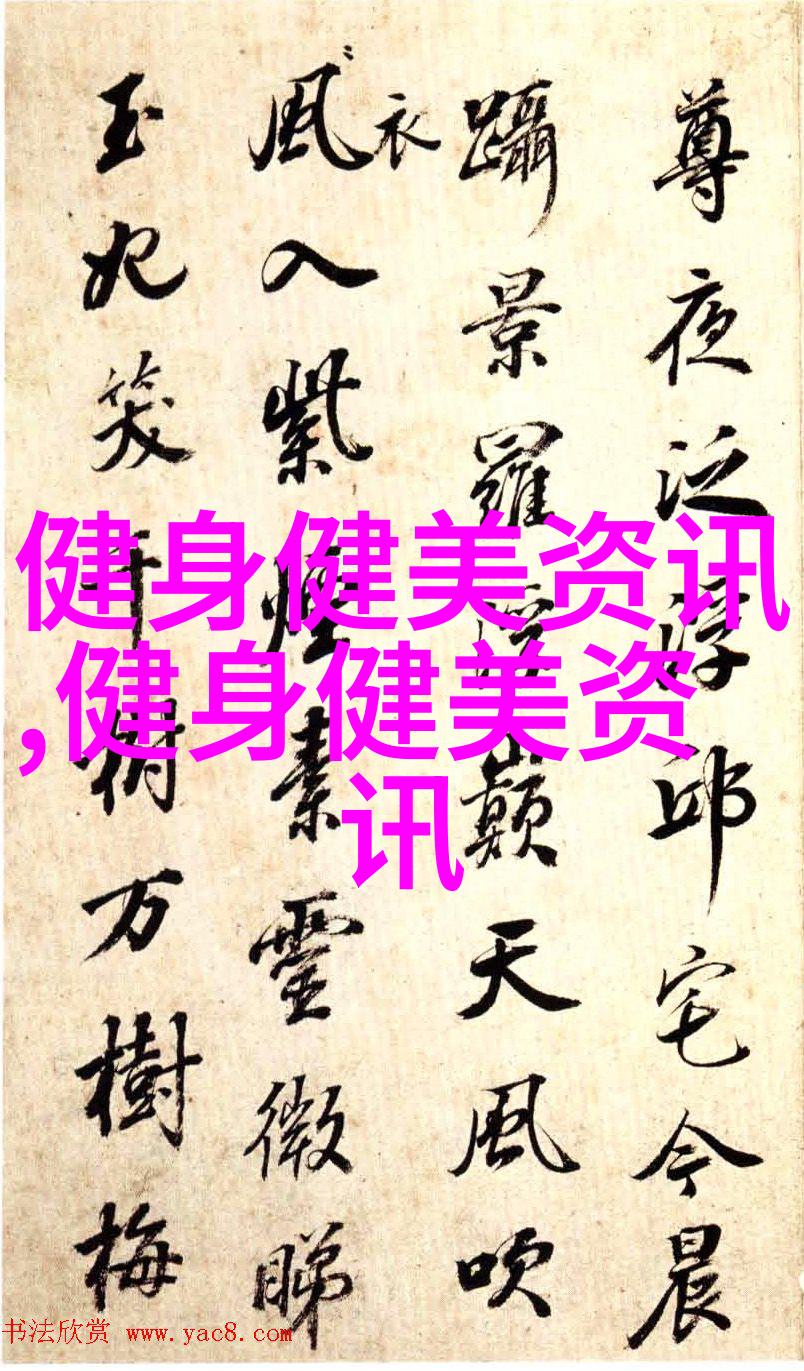 尊夜泛浮邱宅今晨
躡景羅浮巔天風吹
風衣入紫煙素靈微睇
玉妃笑千樹万樹梅
健身健美资讯
,健身健美资
讯
书法欣赏 www.yac8.com